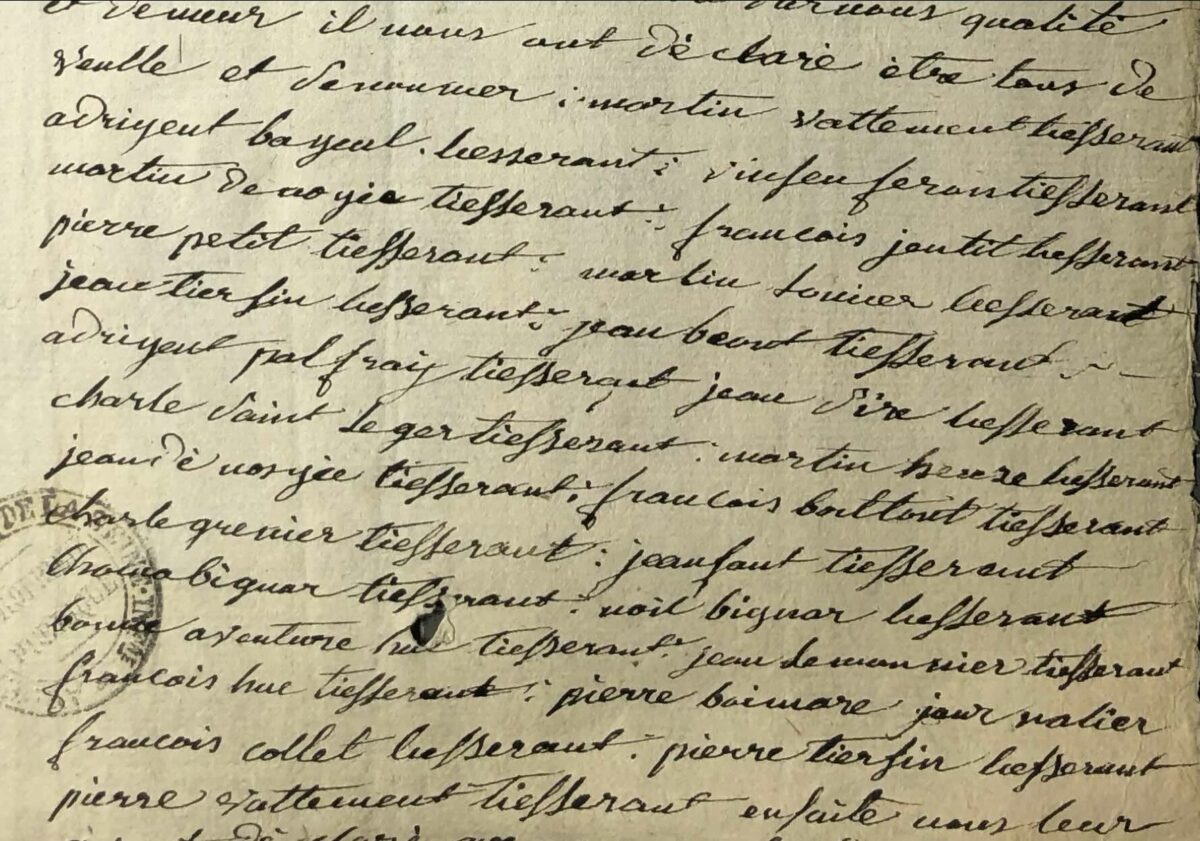 et demeur il nous ont déclaré être tous de
veulle et denommer : martin vattement tiesserant
adrigent bayeul . tiesserant : vinsen feron tiesserant
martin denoyie tiesserant : francois jentit tiesserant
pierre petit tiesserant : martin tiesserant
jean tiersin tiesserant : jean beont tiesserant
adrigent palfray tiesserant jean dire tiesserant
charle saint leger tiesserant : martin heuze tiesserant
jean dè nosyie tiesserant : francois boittout tiesserant
charle grenier tiesserant : jean fant tiesserant
thoma biguar tiesserant : noil biguar tiesserant
bonne aventure hue tiesserant : jean lemonnier tiesserant
francois hue tiesserant : pierre boimare journalier
francois collet tiesserant : pierre tiersin tiesserant
pierre vattement tiesserant ensuite nous leur